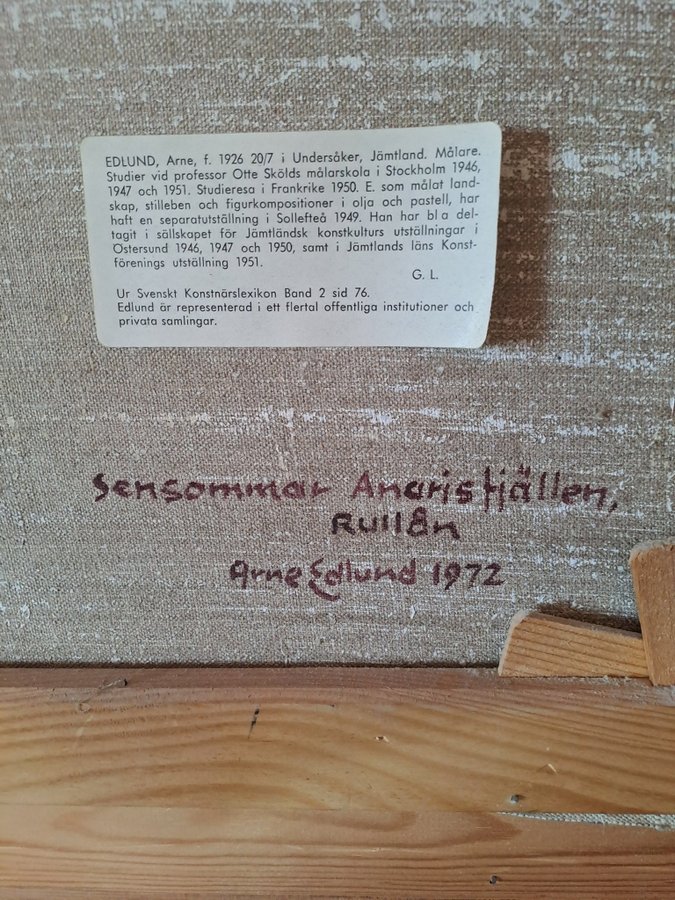 EDLUND, Arne, f. 1926 20/7 i Undersåker, Jämtland. Målare.
Studier vid professor Otte Skölds målarskola i Stockholm 1946,
1947 och 1951. Studieresa i Frankrike 1950. E. som målat land-
skap, stilleben och figurkompositioner i olja och pastell, har
haft en separatutställning i Sollefteå 1949. Han har bl a del-
tagit i sällskapet för Jämtländsk konstkulturs utställningar i
Östersund 1946, 1947 och 1950, samt i Jämtlands läns Konst-
förenings utställning 1951.
G. L.
Ur Svenskt Konstnärslexikon Band 2 sid 76.
Edlund är representerad i ett flertal offentliga institutioner och
privata samlingar.
Sensommar Anarisfjällen,
Rullån
Arne Edlund 1972